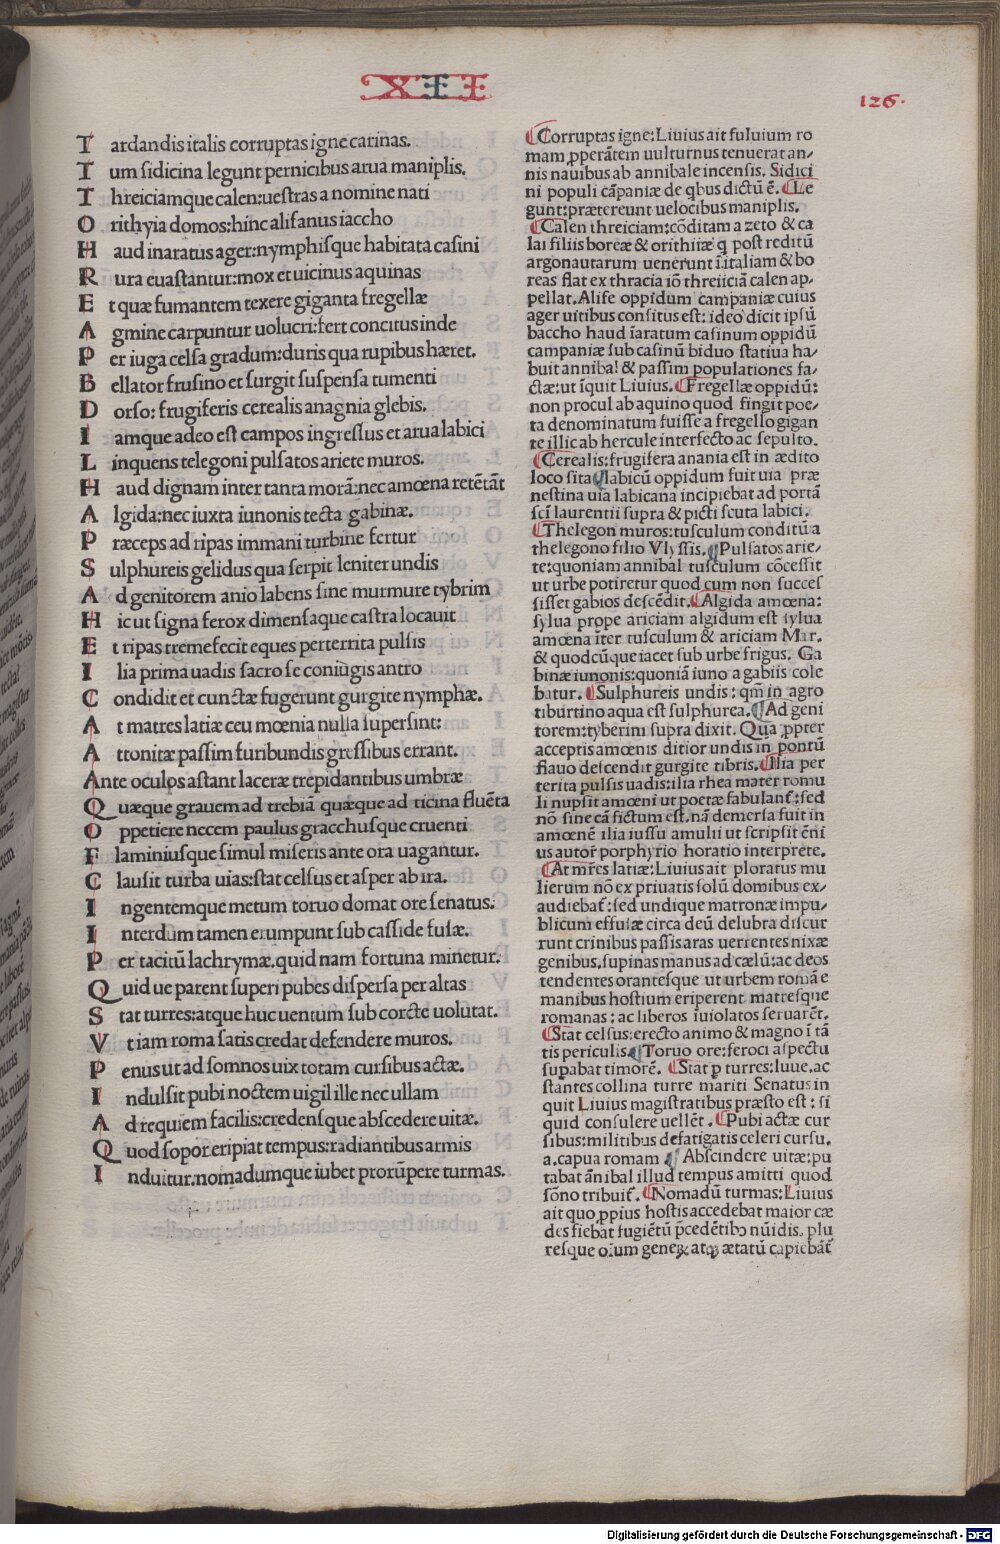 XII
126.
Tardandis italis corruptas igne carinas.
Tum sidicina legunt pernicibus arua maniplis.
Threiciamque calen:uestras a nomine nati
Orithyia domos:hinc alifanus iaccho
Haud inaratus ager:nymphisque habitata casini
Rura euastantur:mox et uicinus aquinas
Et quæ fumantem texere giganta fregellæ
Agmine carpuntur uolucri:fert concitus inde
Per iuga celsa gradum:duris qua rupibus hæret.
Bellator frusino et surgit suspensa tumenti
Dorso: frugiferis cerealis anagnia glebis.
Iamque adeo est campos ingressus et arua labici
Linquens telegoni pulsatos ariete muros.
Haud dignam inter tanta morā:nec amœna retētāt
Algida:nec iuxta iunonis tecta gabinæ.
Præceps ad ripas immani turbine fertur
Sulphureis gelidus qua serpit leniter undis
Ad genitorem anio labens sine murmure tybrim
Hic ut signa ferox dimensaque castra locauit
Et ripas tremefecit eques perterrita pulsis
Ilia prima uadis sacro se coniugis antro
Condidit et cunctæ fugerunt gurgite nymphæ.
At matres latiæ ceu mœnia nulla supersint:
Attonitæ passim furibundis gressibus errant.
Ante oculos astant laceræ trepidantibus umbræ
Quæque grauem ad trebiā quæque ad ticina fluēta
Oppetiere necem paulus gracchusque cruenti
Flaminiusque simul miseris ante ora uagantur.
Clausit turba uias:stat celsus et asper ab ira.
Ingentemque metum toruo domat ore senatus.
Interdum tamen erumpunt sub casside fusæ.
Per tacitū lachrymæ.quid nam fortuna minetur.
Quid ue parent superi pubes dispersa per altas
Stat turres:atque huc uentum sub corde uolutat.
Vt iam roma satis credat defendere muros.
Penus ut ad somnos uix totam cursibus actæ.
Indulsit pubi noctem uigil ille nec ullam
Ad requiem facilis:credensque abscedere uitæ.
Quod sopor eripiat tempus:radiantibus armis
Induitur.nomadumque iubet prorūpere turmas.
Corruptas igne:Liuius ait fuluium ro
mam pperātem uulturnus tenuerat an/
nis nauibus ab annibale incensis. Sidici
ni populi cāpaniæ de qbus dictū ē. Le
gunt:prætereunt uelocibus maniplis.
Calen threiciam:cōditam a zeto & ca
lai filiis boreæ & orithiiæ q post reditū
argonautarum uenerunt ī italiam & bo
reas flat ex thracia iō threiiciā calen ap/
pellat.Alife oppidum campaniæ cuius
ager uitibus consitus est: ideo dicit ipsū
baccho haud īaratum casinum oppidū
campaniæ sub casinū biduo statiua ha/
buit annibal & passim populationes fa/
ctæ:ut īquit Liuius. Fregellæ oppidū:
non procul ab aquino quod fingit poe/
ta denominatum fuisse a fregello gigan
te illic ab hercule interfecto ac sepulto.
Cerealis:frugifera anania est in ædito
loco sita labicū oppidum fuit uia præ
nestina uia labicana incipiebat ad portā
scī laurentii supra & picti scuta labici.
Thelegon muros:tusculum conditū a
thelegono filio Vlyssis. Pulsatos arie/
te:quoniam annibal tusculum cōcessit
ut urbe potiretur quod cum non succes
sisset gabios descēdit. Algida amœna:
sylua prope ariciam algidum est sylua
amœna īter tusculum & ariciam Mar.
& quodcūque iacet sub urbe frigus. Ga
binæ iunonis:quoniā iuno a gabiis cole
batur. Sulphureis undis: qm̄ in agro
tiburtino aqua est sulphurea. Ad geni
torem:tyberim supra dixit. Qua ppter
acceptis amœnis ditior undis in pontū
flauo descendit gurgite tibris. Ilia per
terita pulsis uadis:ilia rhea mater romu
li nupsit amœni ut poetæ fabulant̄:sed
nō sine cā fictum est.nā demersa fuit in
amœnē ilia iussu amulii ut scripsit ēni
us autor̄ porphyrio horatio interprete.
At mr̄es latiæ:Liuius ait ploratus mu
lierum nō ex priuatis solū domibus ex/
audiebat̄:sed undique matronæ impu/
blicum effusæ circa deū delubra discur
runt crinibus passis aras uerrentes nixæ
genibus.supinas manus ad cælū:ac deos
tendentes orantesque ut urbem romā e
manibus hostium eriperent matresque
romanas: ac liberos iuiolatos seruarēt.
Stat celsus:erecto animo & magno ī tā
tis periculis. Toruo ore:feroci aspectu
supabat timorē. Stat p turres:Iuue.ac
stantes collina turre mariti Senatus in
quit Liuius magistratibus præsto est: si
quid consulere uellēt. Pubi actæ cur
sibus:militibus defatigatis celeri cursu.
a.capua romam Abscindere uitæ:pu
tabat ānibal illud tempus amitti quod
sōno tribuit̄. Nomadū turmas:Liuius
ait quo ppius hostis accedebat maior cæ
des fiebat fugiētū p̄cedētibɔ nūidis. plu
resque oīum geneꝝ atqꝫ ætatū capiebāt̄
Digitalisierung gefördert durch die Deutsche Forschungsgemeinschaft - DFG